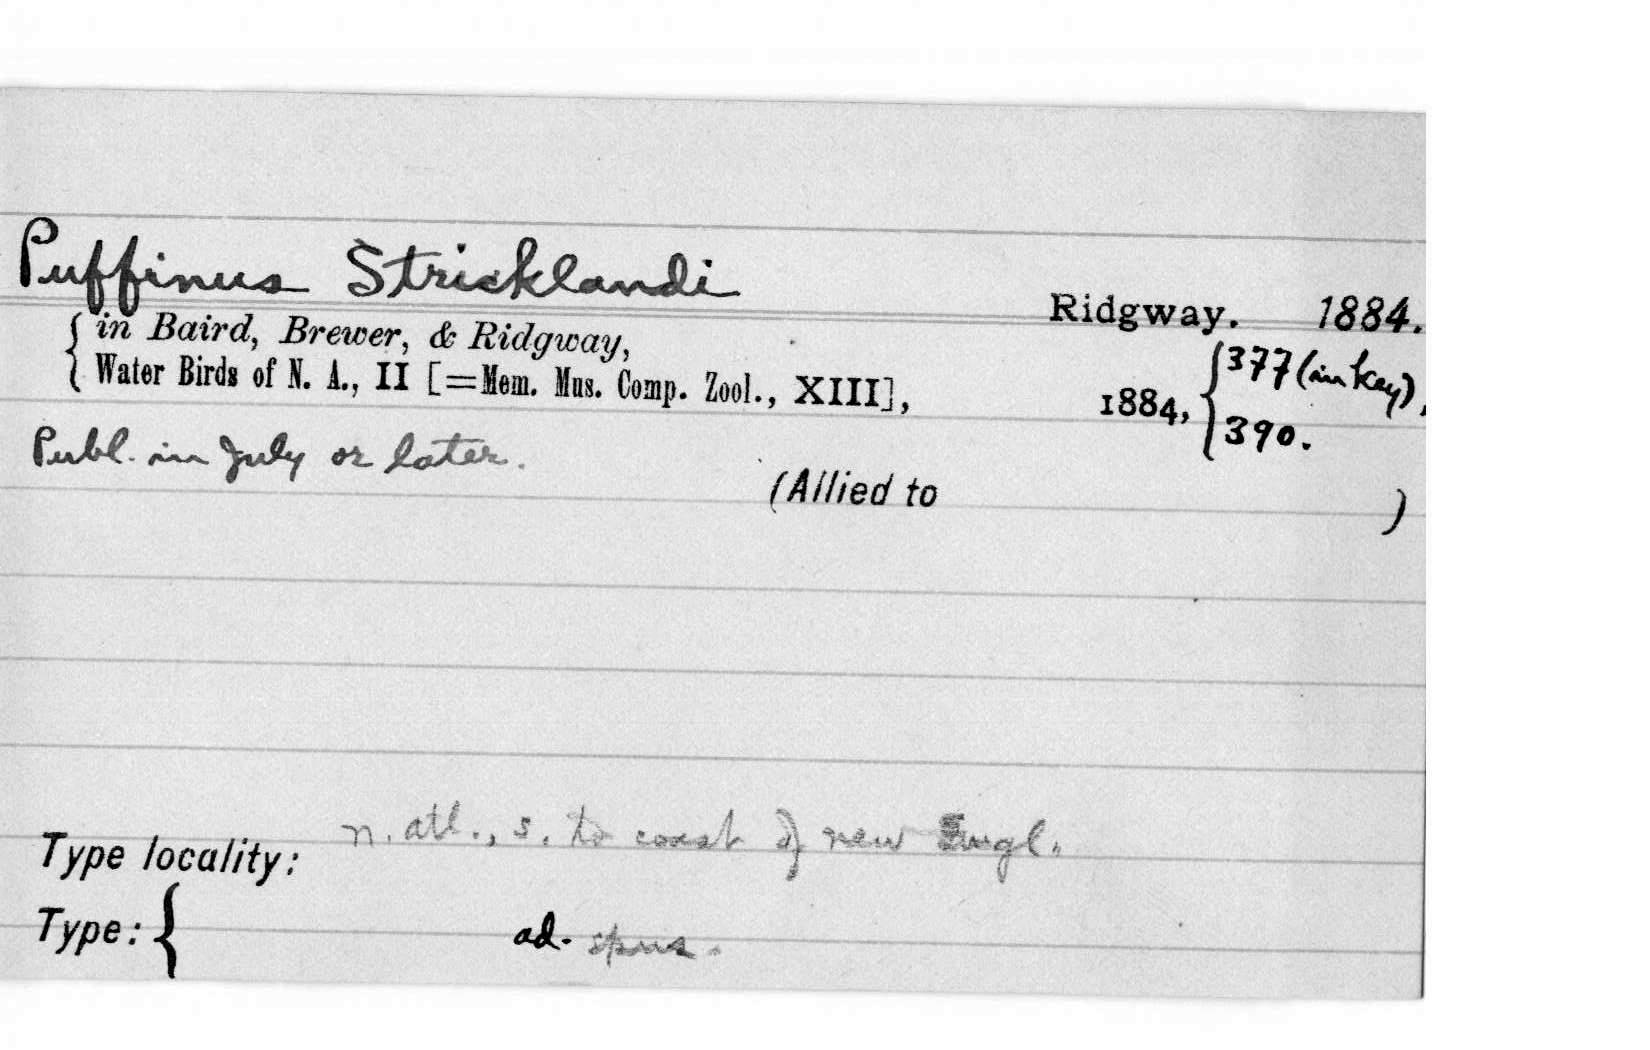 Puffinus Stricklandi
Ridgway. 1884.
{ in Baird, Brewer, & Ridgway,
Water Birds of N. A., II [=Mem. Mus. Comp. Zool., XIII], 1884, { 377 (in key),
390.
Publ. in July or later.
(Allied to )
Type locality: n. atl., s. to coast of new Engl.
Type: { ad. spms.